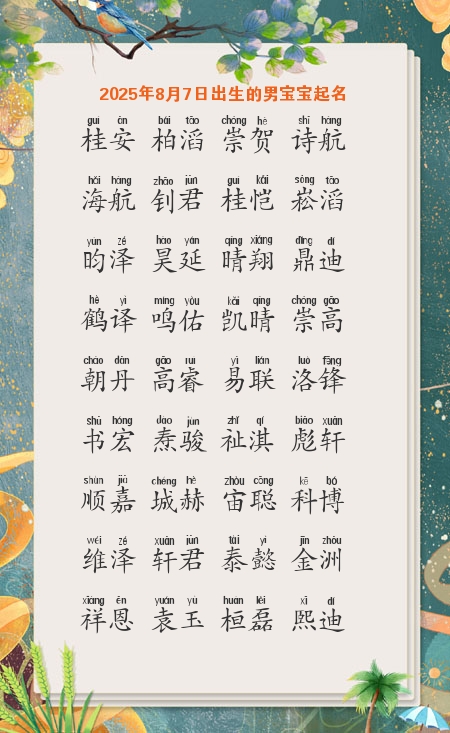 2025年8月7日出生的男宝宝起名
guì ān bǎi tāo chóng hè shī háng
桂安 柏滔 崇贺 诗航
hǎi háng zhāo jūn guì kǎi sōng tāo
海航 钊君 桂恺 崧滔
yún zé hào yán qíng xiáng dǐng dí
昀泽 昊延 晴翔 鼎迪
hè yì míng yòu kǎi qíng chóng gāo
鹤译 鸣佑 凯晴 崇高
cháo dān gāo ruì yì lián luò fēng
朝丹 高睿 易联 洛锋
shū hóng dào jùn zhǐ qí biāo xuān
书宏 焘骏 祉淇 彪轩
shùn jiā chéng hè zhòu cōng kē bó
顺嘉 城赫 宙聪 科博
wéi zé xuān jūn tài yì jīn zhōu
维泽 轩君 泰懿 金洲
xiáng ēn yuán yù huán lěi xī dí
祥恩 袁玉 桓磊 熙迪